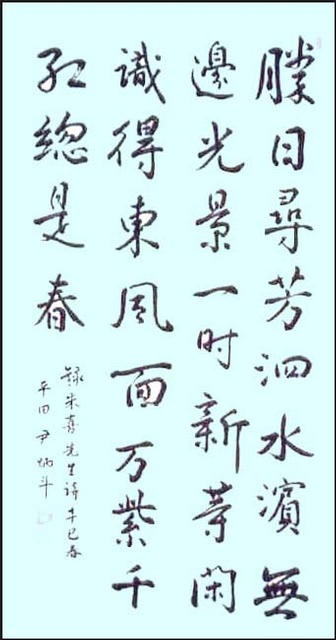 勝日尋芳泗水濱無
邊光景一时新等閑
識得東風面万紫千
紅總是春
錄朱熹先生詩辛巳春
平田尹炳斗